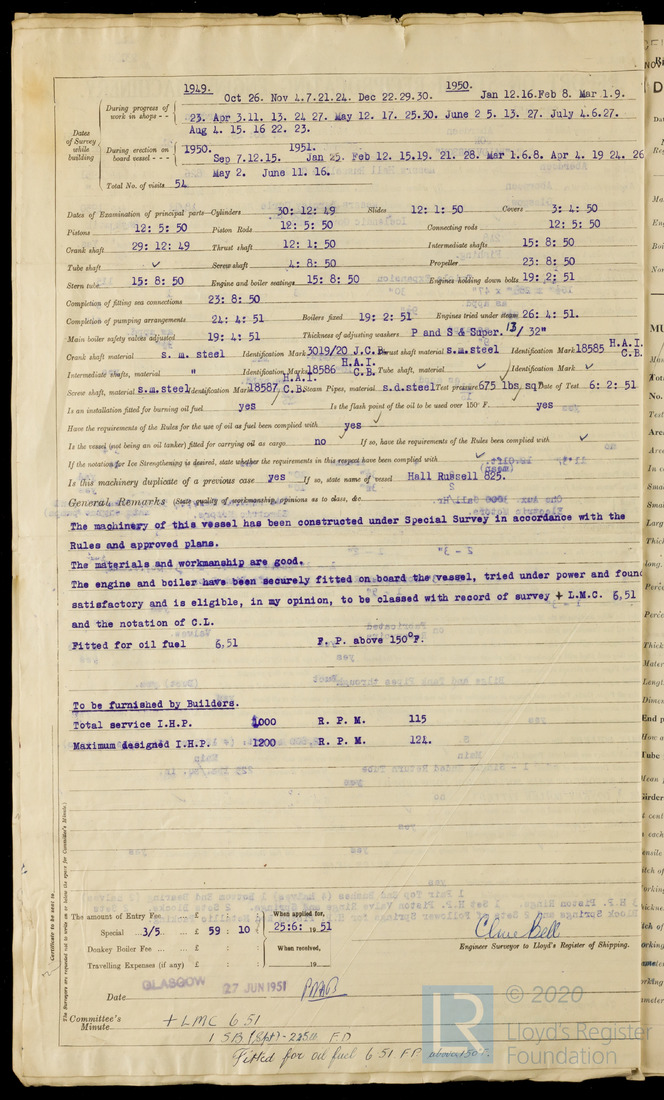 1949. 1950.
Oct 26. Nov 4.7.21.24. Dec 22.29.30. Jan 12.16.Feb 8. Mar 1.9.
During progress of work in shops - -
23. Apr 3.11. 13. 24 27. May 12. 17. 25.30. June 2 5. 13. 27. July 4.6.27.
Aug 4. 15. 16 22. 23.
Dates of Survey while building
During erection on board vessel - - -
1950. 1951.
Sep 7.12.15. Jan 25. Feb 12. 15.19. 21. 28. Mar 1.6.8. Apr 4. 19 24. 26
May 2. June 11. 16.
Total No. of visits 54
Dates of Examination of principal parts—Cylinders 30: 12: 49 Slides 12: 1: 50 Covers 3: 4: 50
Pistons 12: 5: 50 Piston Rods 12: 5: 50 Connecting rods 12: 5: 50
Crank shaft 29: 12: 49 Thrust shaft 12: 1: 50 Intermediate shafts 15: 8: 50
Tube shaft ✓ Screw shaft 4: 8: 50 Propeller 23: 8: 50
Stern tube 15: 8: 50 Engine and boiler seatings 15: 8: 50 Engines holding down bolts 19: 2: 51
Completion of fitting sea connections 23: 8: 50
Completion of pumping arrangements 24: 4: 51 Boilers fixed 19: 2: 51 Engines tried under steam 26: 4: 51.
Main boiler safety valves adjusted 19: 4: 51 Thickness of adjusting washers P and S & Super. 13/32"
Crank shaft material s. m. steel Identification Mark 3019/20 J.C.B. Thrust shaft, material s.m.steel Identification Mark 18585 H.A.I. C.B.
Intermediate shafts, material " Identification Marks 18586 H.A.I. C.B. Tube shaft, material ✓ Identification Mark ✓
Screw shaft, material s.m.steel Identification Mark 18587 H.A.I. C.B. Steam Pipes, material s.d.steel Test pressure 675 lbs sq" Date of Test 6: 2: 51
Is an installation fitted for burning oil fuel yes Is the flash point of the oil to be used over 150° F. yes
Have the requirements of the Rules for the use of oil as fuel been complied with yes
Is the vessel (not being an oil tanker) fitted for carrying oil as cargo no If so, have the requirements of the Rules been complied with ✓
If the notation for Ice Strengthening is desired, state whether the requirements in this respect have been complied with ✓
Is this machinery duplicate of a previous case yes If so, state name of vessel Hall Russell 825.
General Remarks (State quality of workmanship, opinions as to class, &c.
The machinery of this vessel has been constructed under Special Survey in accordance with the
Rules and approved plans.
The materials and workmanship are good.
The engine and boiler have been securely fitted on board the vessel, tried under power and found
satisfactory and is eligible, in my opinion, to be classed with record of survey + L.M.C. 6,51
and the notation of C.L.
Fitted for oil fuel 6,51 F. P. above 150°F.
To be furnished by Builders.
Total service I.H.P. 1000 R. P. M. 115
Maximum designed I.H.P. 1200 R. P. M. 124.
Certificate to be sent to
The Surveyors are requested not to write on or below the space for Committee's Minute.
The amount of Entry Fee ... £ : : When applied for,
Special 3/5 ... £ 59 : 10 : 25:6: 19 51
Donkey Boiler Fee ... £ : : When received,
Travelling Expenses (if any) £ : : 19
Clive Bell
Engineer Surveyor to Lloyd's Register of Shipping.
Date GLASGOW 27 JUN 1951
Committee's Minute. + LMC 6 51
1 SB (Spt) - 225 lb F.D
Fitted for oil fuel 6 51 F.P. above 150°F.
LR
© 2020
Lloyd's Register
Foundation